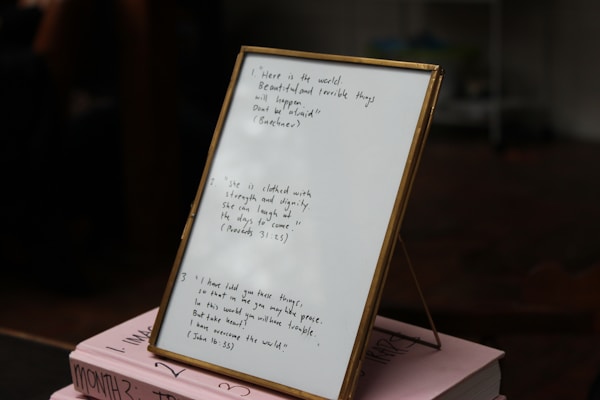 1. "Here is the world.
Beautiful and terrible things
will happen.
Dont be afraid"
(Buechner)
2. "She is clothed with
strength and dignity.
She can laugh at
the days to come."
(Proverbs 31:25)
3 "I have told you these things,
so that in me you may have peace.
In this world you will have trouble.
But take heart!
I have overcome the world."
(John 16:33)
1. IMAG
2
3
MONTH 3: